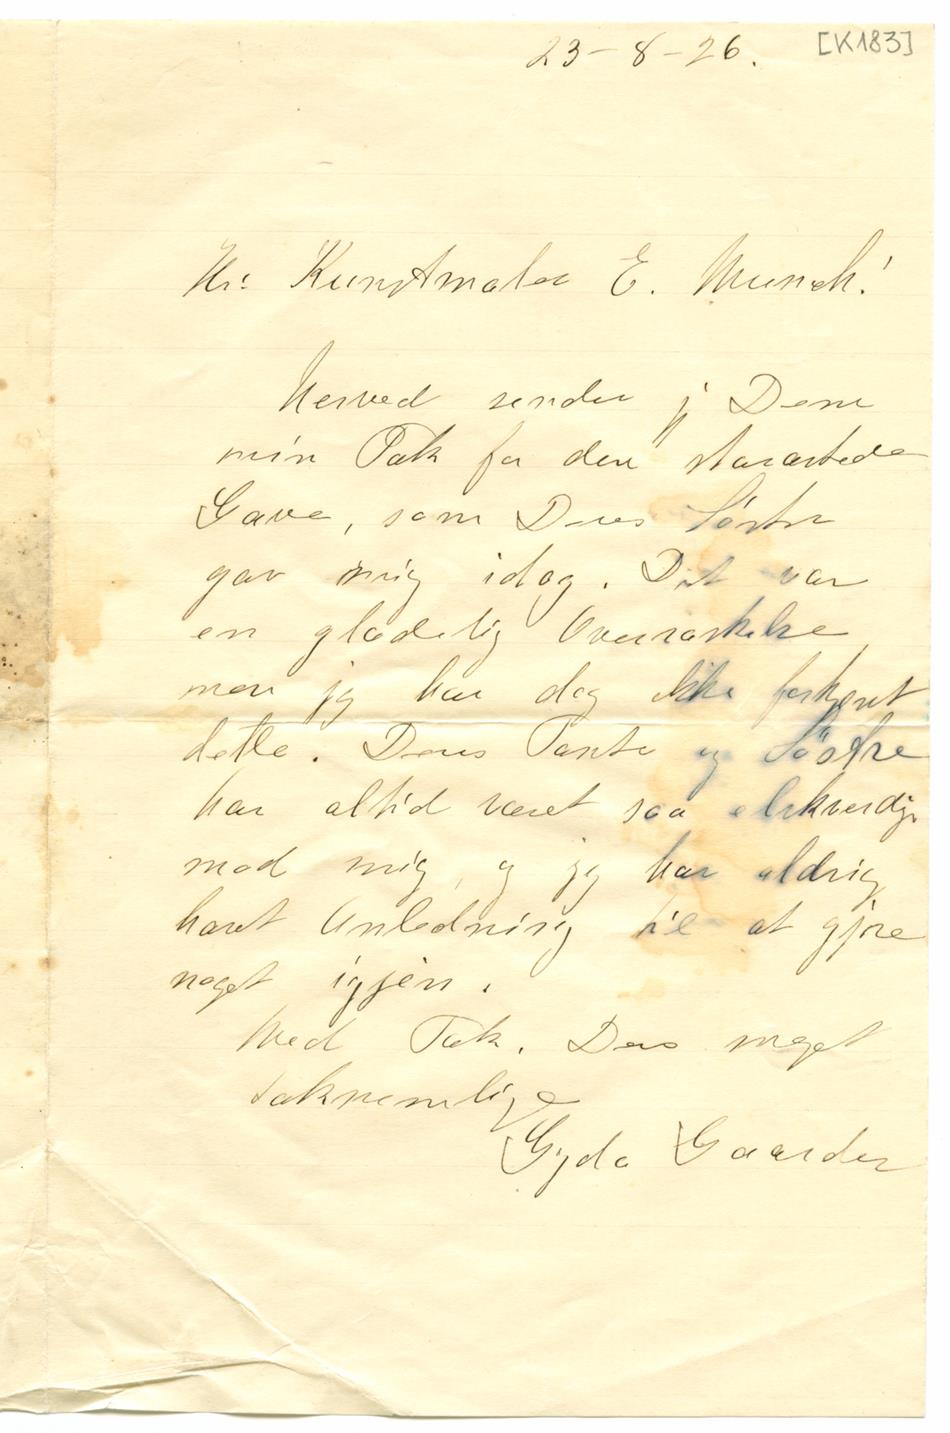 23-8-26. [K183]
Hr: Kunstmaler E. Munch!
Herved sender jeg Dem
min Tak for den storartede
Gave, som Deres Søster
gav mig idag. Det var
en gladelig Overraskelse
men jeg har dog ikke fortjent
dette. Deres Tante og Søstre
har altid været saa elskverdige
mod mig, og jeg har aldrig
havt Anledning til at gjøre
noget igjen.
Med Tak. Deres meget
taknemlige
Gyda Gaarder